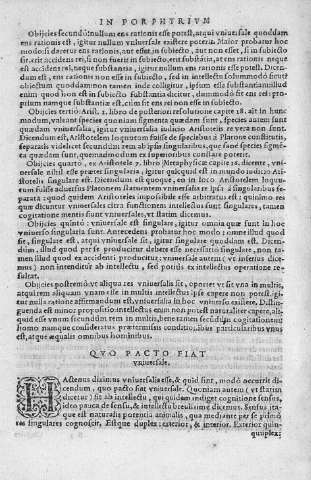 IN PORPHYRIVM
Obijcies secundò: nullum ens rationis esse potest, atqui vniuersale quoddam
ens rationis est, igitur nullum vniuersale existere poterit. Maior probatur hoc
modo: si daretur ens rationis, aut esset in subiecto, aut non esset, si in subiecto
sit, erit accidens rei, si non fuerit in subiecto, erit substantia, at ens rationis neque
est accidens rei, neque substantia, igitur nullum ens rationis esse potest. Dicen-
dum est, ens rationis non esse in subiecto, sed in intellectu solummodo sicut
obiectum quoddam non tamen inde colligitur, ipsum esse substantiam: illud
enim quod non est in subiecto substantia dicitur, dummodo sit ens rei: pro-
prium namque substantiæ est, cùm sit ens rei non esse in subiecto.
Obijcies tertio: Arist. 1. libro de posteriori resolutione capit. 18. ait in hunc
modum, valeant species quoniam signeta quædam sunt, species autem sunt
quædam vniuersalia, igitur vniuersalia iudicio Aristotelis re vera non sunt.
Dicendum est, Aristotelem loquutum fuisse de speciebus à Platone constitutis,
separatis videlicet secundùm rem ab ipsis singularibus, quæ sanè species signe-
ta quædam sunt, quemadmodum ex superioribus constare poterit.
Obijcies quarto, ex Aristotele 7. libro Metaphysicæ capite 18. dicente, vni-
uersale nihil esse præter singularia, igitur quicquid est in mundo iudicio Ari-
stotelis singulare est. Dicendum est quoque, eo in loco Aristotelem loquu-
tum fuisse aduersus Platonem statuentem vniuersalia re ipsa à singularibus se-
parata: quod quidem Aristoteles impossibile esse arbitratus est: quinimo res
quæ dicuntur vniuersales citra functionem intellectus sunt singulares, tamen
cogitatione mentis sunt vniuersales, vt statim dicemus.
Obijcies quintò: vniuersale est singulare, igitur omnia quæ sunt in hoc
vniuerso singularia sunt. Antecedens probatur hoc modo: omne illud quod
sit, singulare est, atqui vniuersale sit, igitur singulare quoddam est. Dicen-
dum, illud quod producitur debere esse necessitatio singulare, non ta-
men illud quod ex accidenti producitur: vniuersale autem (vt inferius dice-
mus) non intenditur ab intellectu, sed potius ex intellectus operatione re-
sultat.
Obijcies postremò: vt aliquid res vniuersalis sit, oportet vt sit vna in multis,
atqui rem aliquam vnam esse in multis intellectus ipse expers non potest, igi-
tur malè ratione affirmandum est, vniuersalia in hoc vniuerso existere. Distin-
guenda est minor propositio: intellectus enim non potest naturaliter capere, ali-
quid esse vnum secundùm rem in multis, bene tamen secundùm cogitationem:
homo namque consideratus prætermissis conditionibus particularibus vnus
est, atque æqualis omnibus hominibus.
QVO PACTO FIAT
vniuersale.
HActenus diximus vniuersalia esse, & quid sint, modò occurrit di-
cendum, quo pacto fiat vniuersale. Quoniam autem (vt statim
dicetur) fit ab intellectu, qui quidem indiget cognitione sensus,
ideo pauca de sensu, & intellectu breuissimè dicemus. Sensus ita-
que est naturalis potentia animalis, qua mediante per se primò
res singulares cognoscit. Estque duplex: exterior, & interior. Exterior quin-
quiplex;